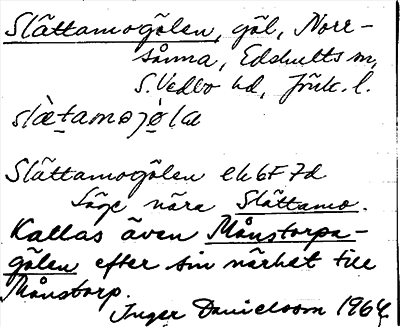 Slättamogölen, göl, Norr-
sånna, Edshults sn,
S. Vedbo hd, Jönk. l.
slæ̀t̠amøjø̠̀læ
Slättamogölen ek 6F 7d
Läge nära Slättamo.
Kallas även Månstorpa-
gölen efter sin närhet till
Månstorp.
Inger Danielsson 1964